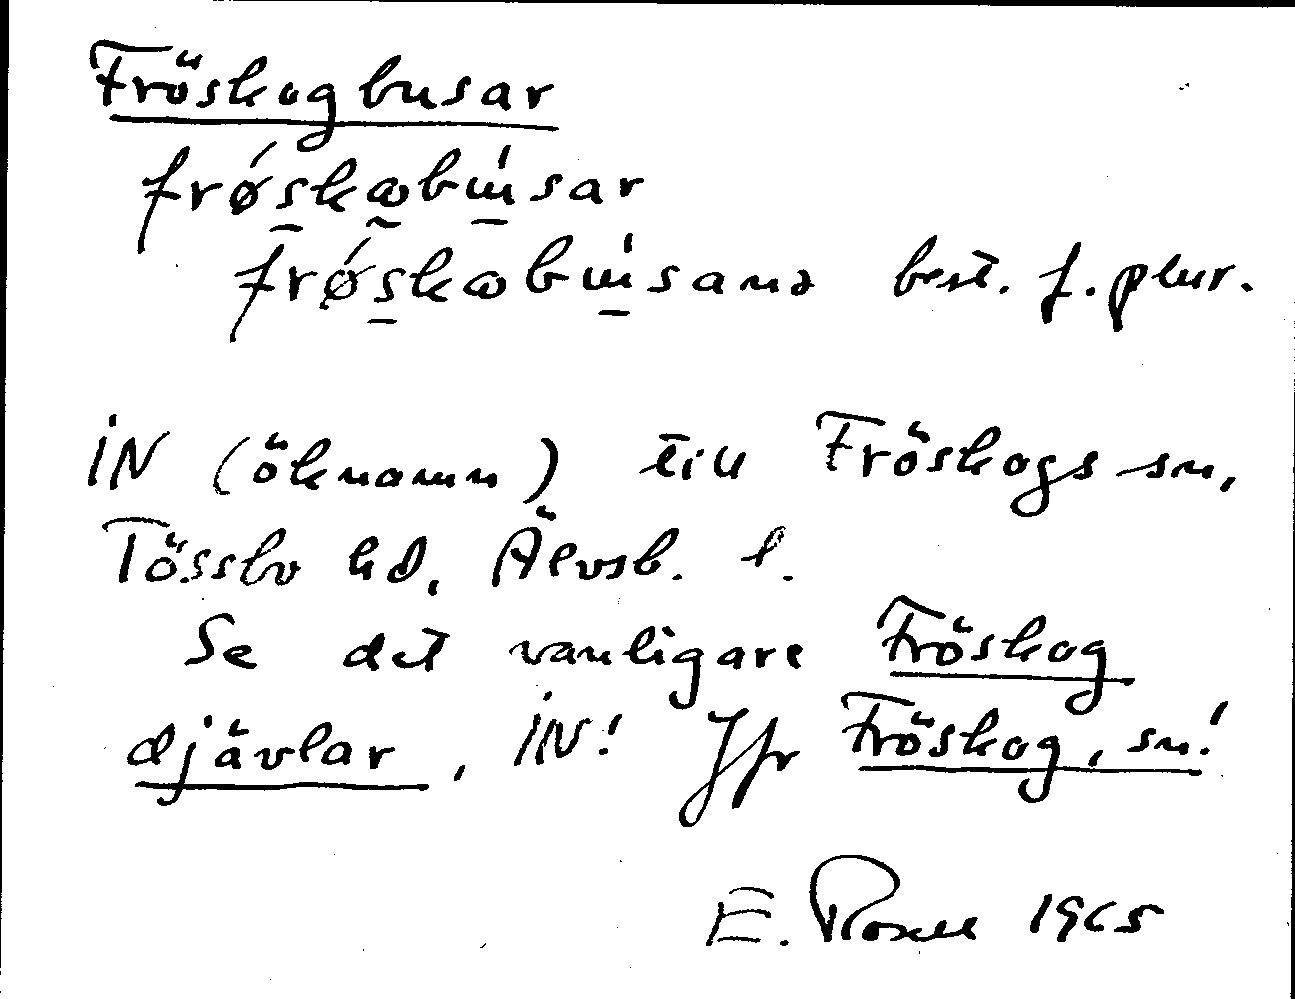 Fröskogbusar
frǿskωbɯ́sar
frǿskωbɯ́sanə best. f. plur.
iN (öknamn) till Fröskogs sn,
Tössbo hd, Älvsb. l.
Se det vanligare Fröskog
djävlar, iN! Jfr Fröskog, sn!
E. Rosell 1965